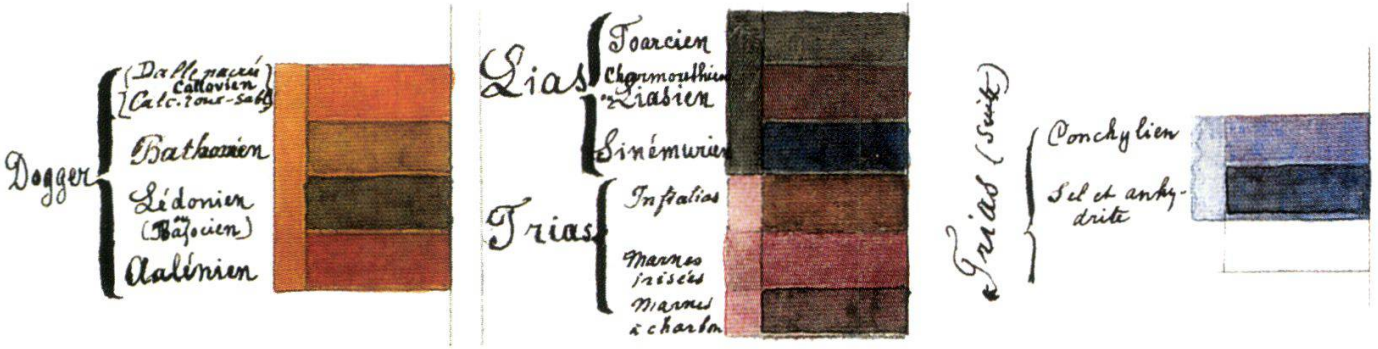 Dogger
(Dalle nacrée)
Callovien
(Calc. roux-sabl)
Bathonien
Lédonien
ou
(Bajocien)
Aalénien
Lias
Toarcien
Charmouthien
ou Liasien
Sinémurien
Trias
Infralias
Marnes
irisées
Marnes
à charbon
Trias (suite)
Conchylien
Sel et anhy-
drite